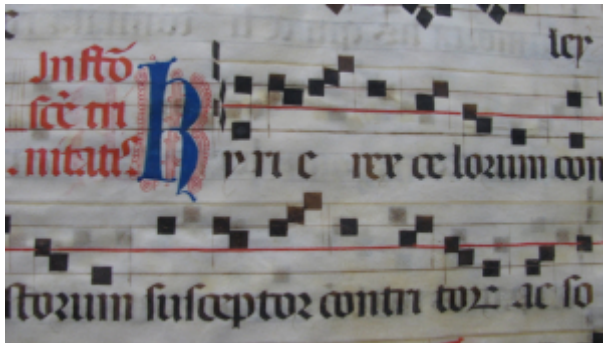 ley
In festõ
scẽ tri
nitatis
Ky ri e rex ce lorum con
storum susceptor contri torꝝ ac so